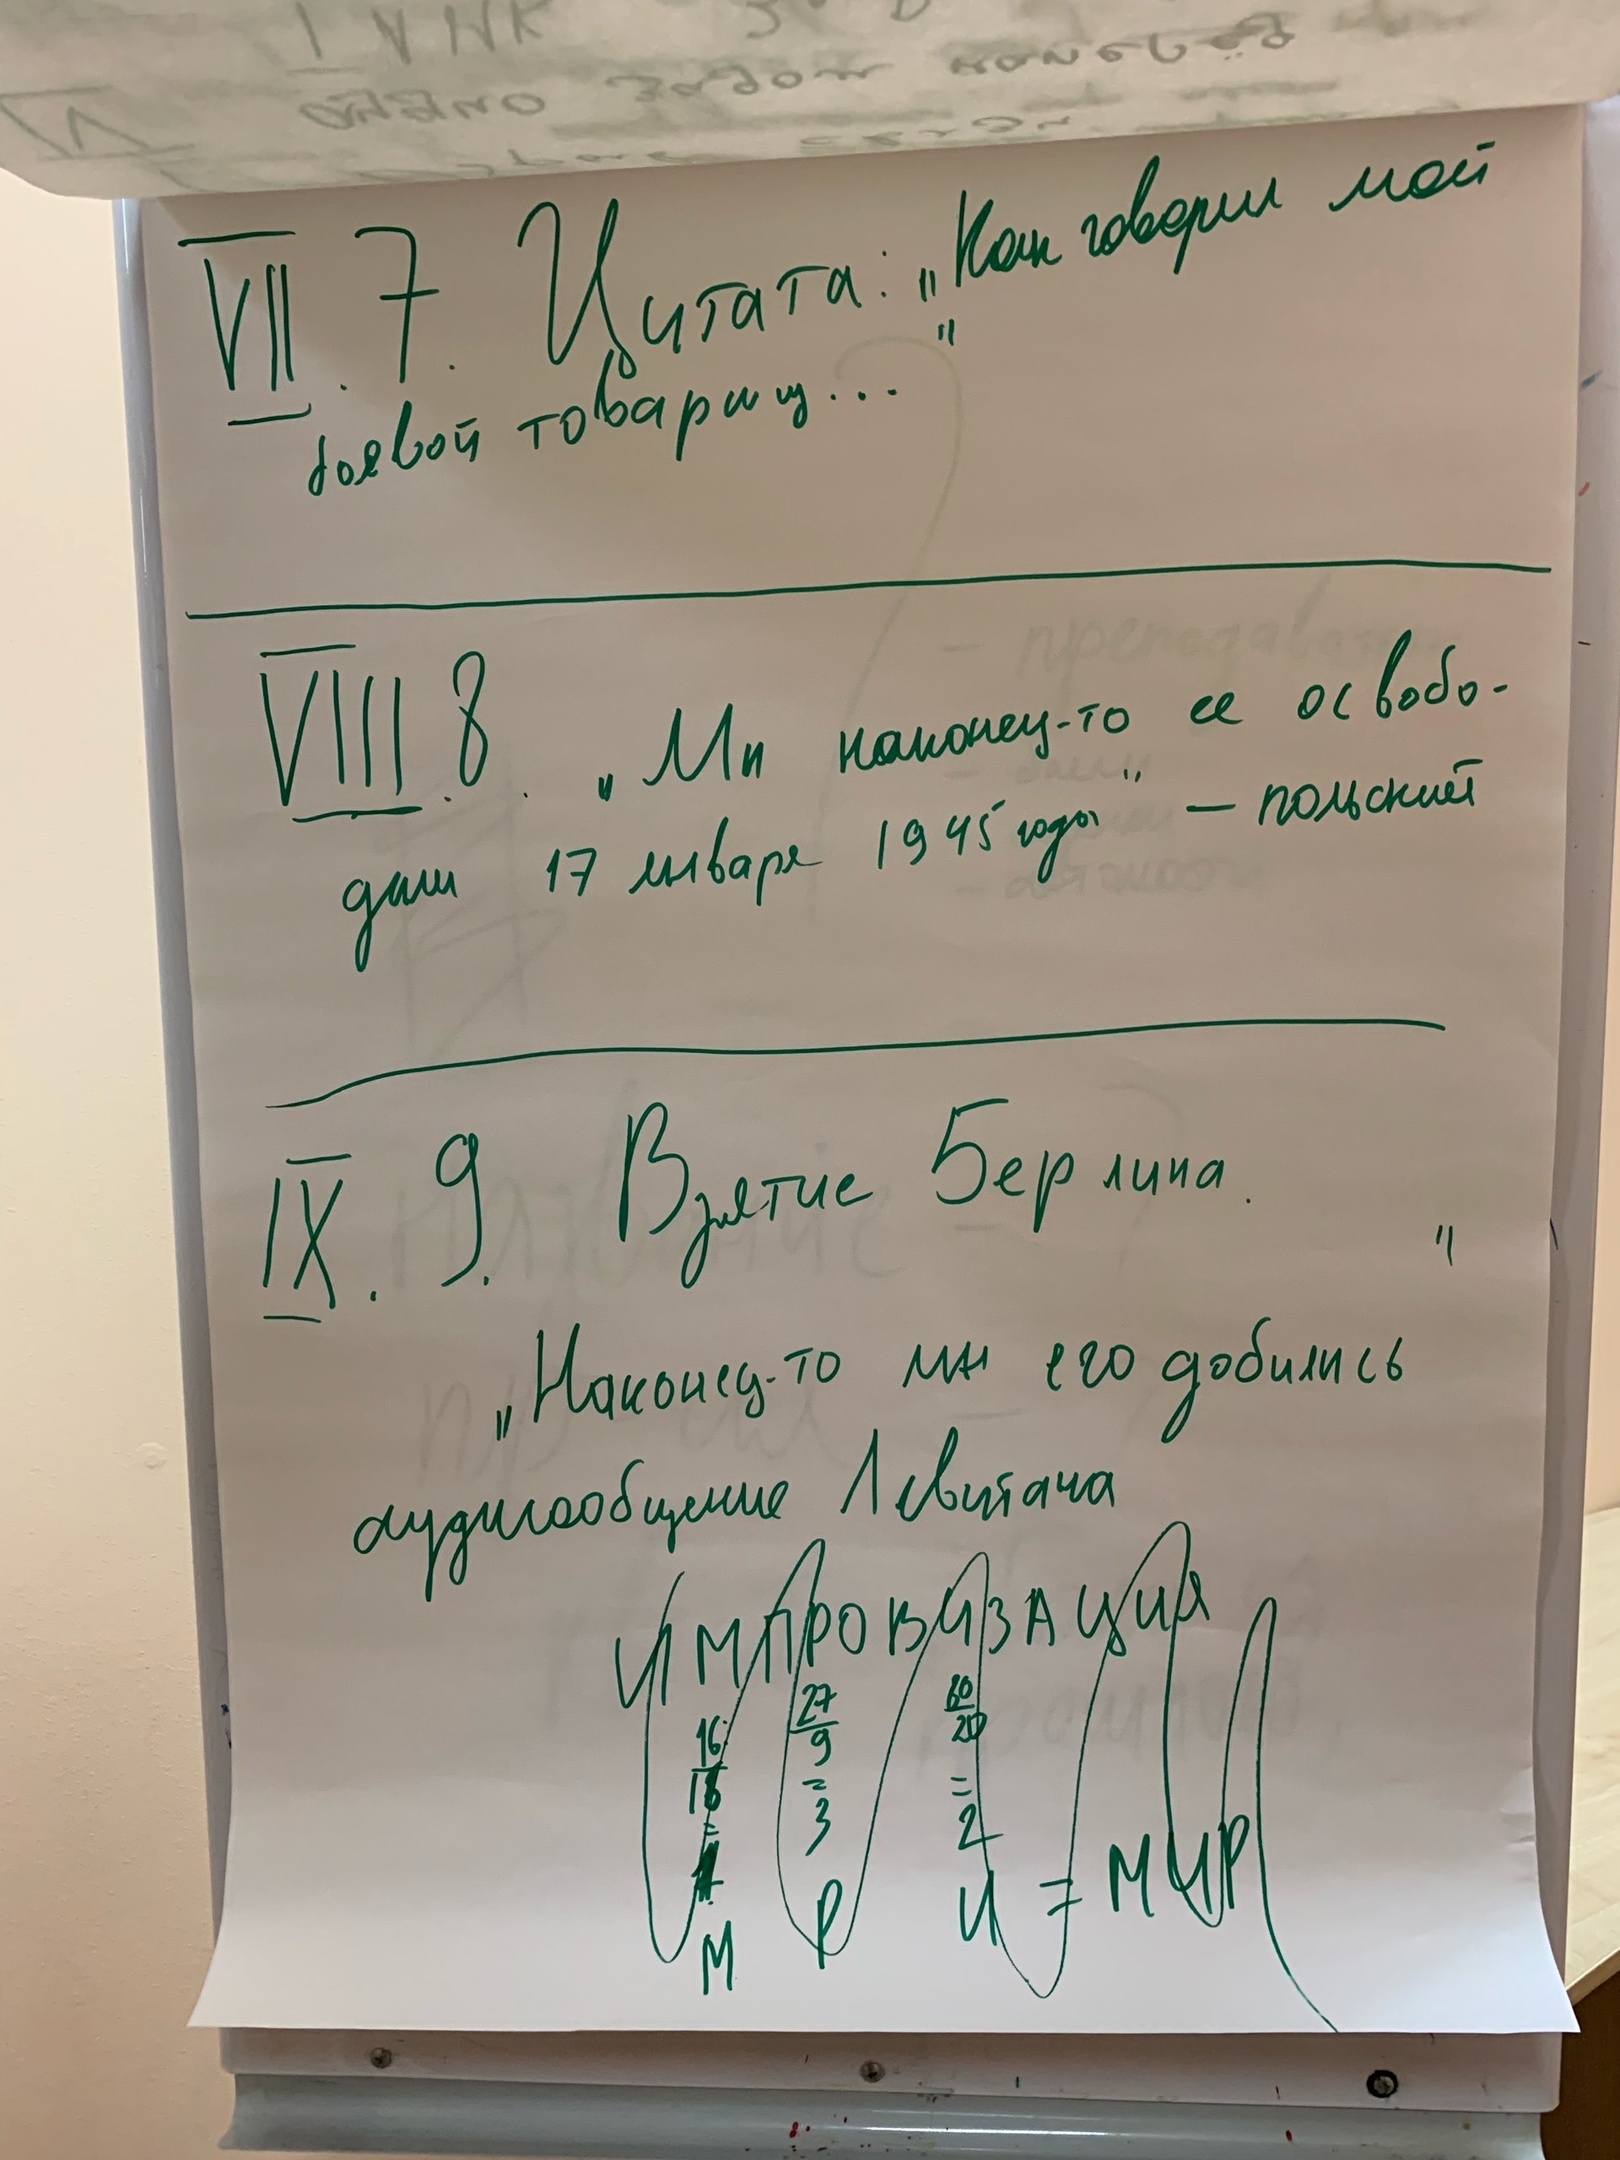 VII. 7. Цитата: „Как говорил мой
боевой товарищ..."
VIII. 8. „Мы наконец-то ее освобо-
дили 17 января 1945 года" — польский
IX. 9. Взятие Берлина.
„Наконец-то мы его добились"
аудиосообщение Левитана
ИМПРОВИЗАЦИЯ
16 27 60
9 20
= = =
3 2
М Р И = МИР